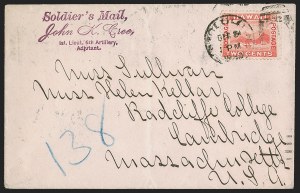 Soldier's Mail,
John K. Cree,
1st. Lieut. 6th Artillery,
Adjutant.
CENTS
Miss Sullivan
Miss Helen Kellar
Radcliffe College
Cambridge
Massachusetts
U.S.A
138